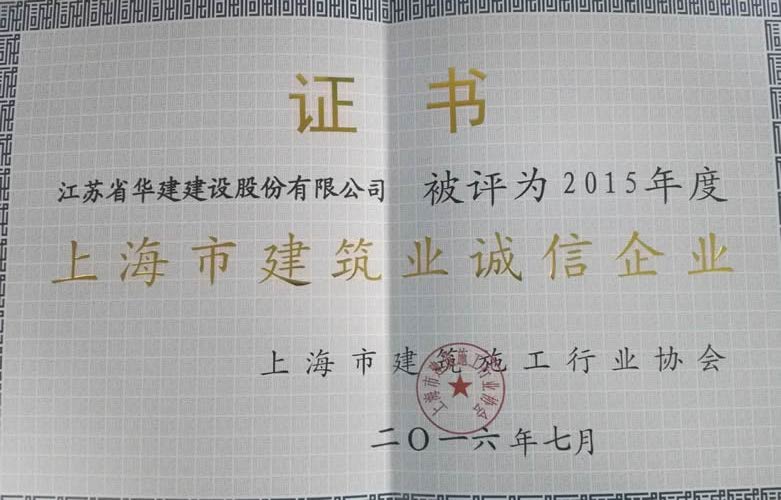 证书
江苏省华建建设股份有限公司 被评为2015年度
上海市建筑业诚信企业
上海市建筑施工行业协会
上海市建筑施工行业协会
二〇一六年七月